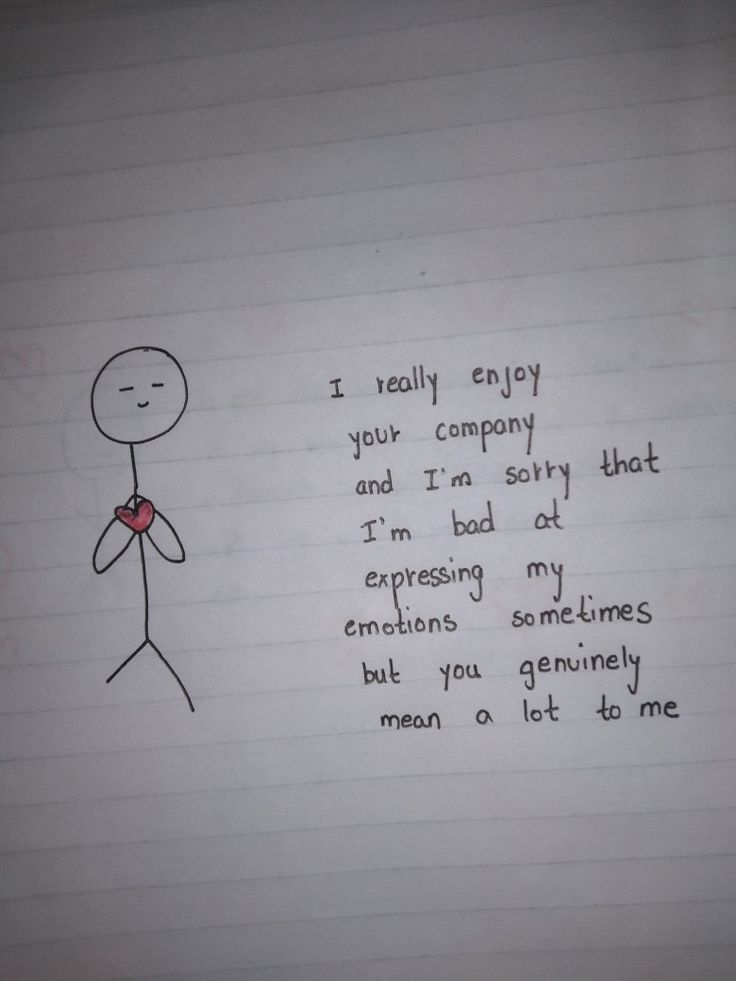 I really enjoy
your company
and I'm sorry that
I'm bad at
expressing my
emotions sometimes
but you genuinely
mean a lot to me